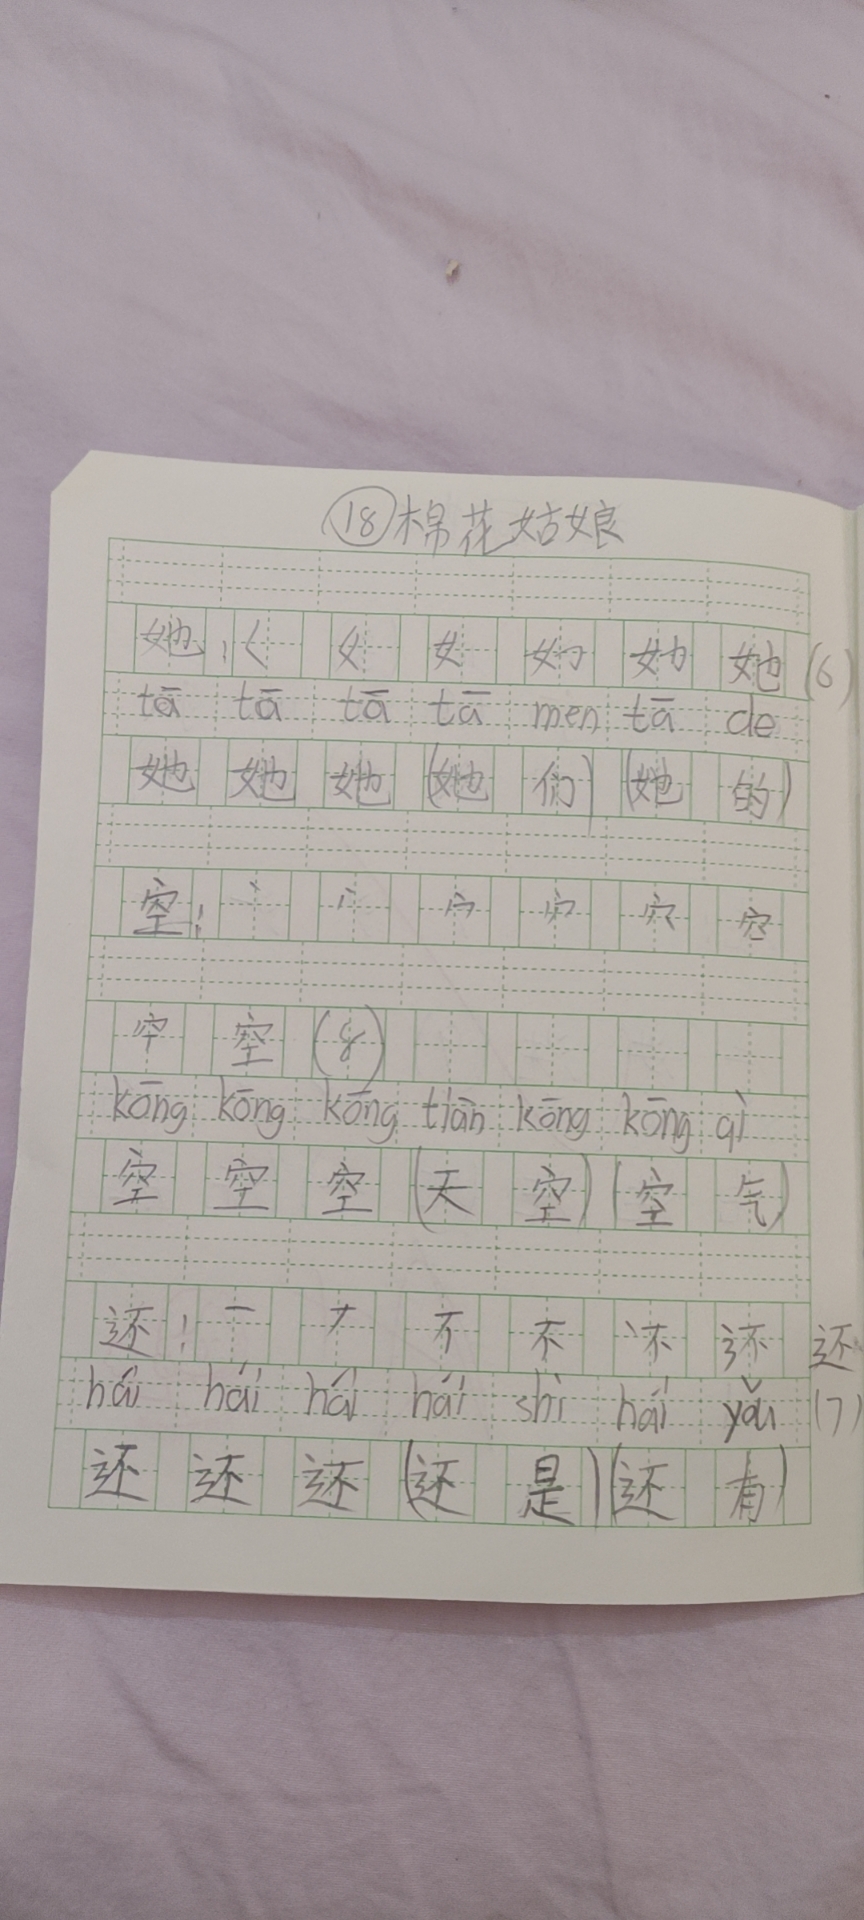 ⑱棉花姑娘
她：ㄑ 夂 女 如 她 她 (6)
tā tā tā tā men tā de
她 她 她 (她 们) (她 的)
空： 丶 丷 宀 宀 穴 穵
空 空 (8)
kōng kōng kōng tiān kōng kōng qì
空 空 空 (天 空) (空 气)
还： 一 丆 不 不 还 还 还
hái hái hái hái shì hái yǒu (7)
还 还 还 (还 是) (还 有)